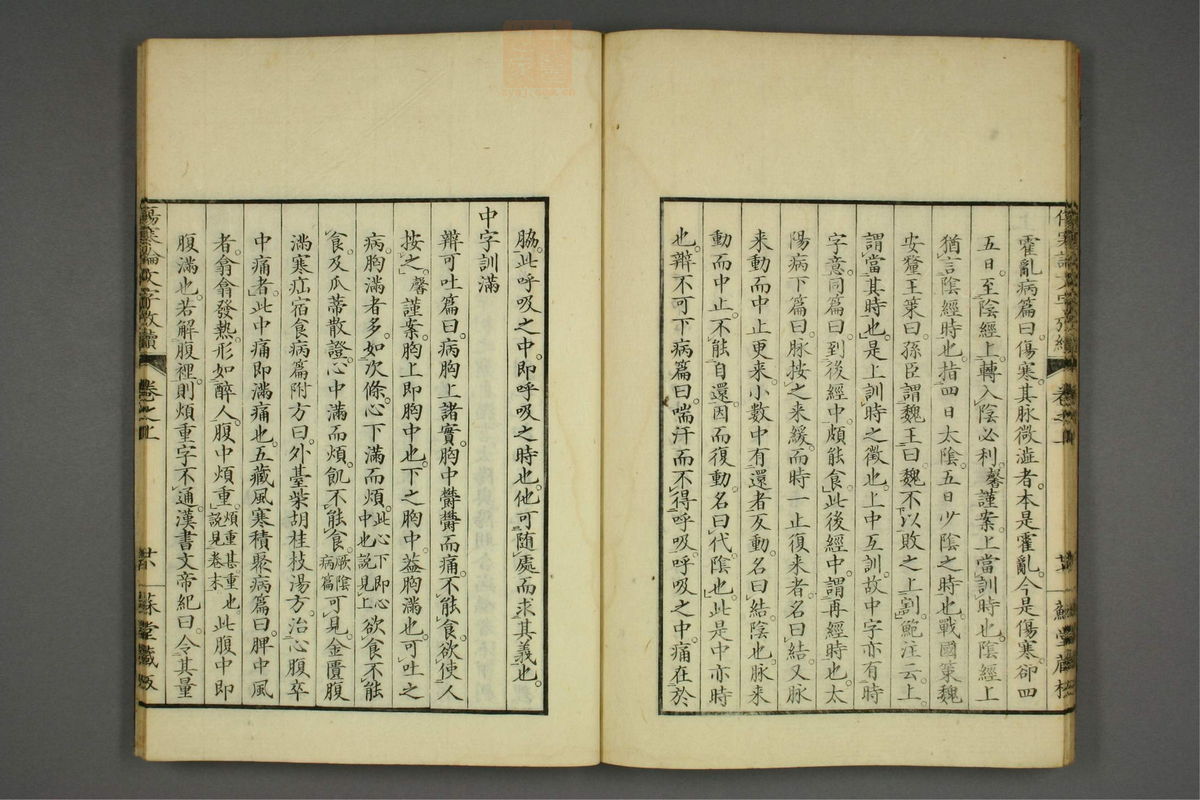 霍亂病篇曰。傷寒。其脉微濇者。本是霍亂。今是傷寒。卻四
五日。至陰經上。轉入陰必利。馨謹案。上當訓時也。陰經上
猶言陰經時也。指四日太陰。五日少陰之時也。戰國策魏
安釐王策曰。孫臣謂魏王曰。魏不以敗之上割。鮑注云。上
謂當其時也。是上訓時之徵也。上中互訓。故中字亦有時
字意。同篇曰。到後經中。頗能食。此後經中。謂再經時也。太
陽病下篇曰。脉按之来緩。而時一止復来者。名曰結。又脉
来動而中止。更来。小數中有還者反動。名曰結陰也。脉来
動而中止。不能自還。因而復動。名曰代陰也。此是中亦時
也。辨不可下病篇曰。喘汗而不得呼吸。呼吸之中。痛在於
脇。此呼吸之中。即呼吸之時也。他可随處而求其義也。
中字訓滿
辨可吐篇曰。病胸上諸實。胸中鬱鬱而痛。不能食。欲使人
按之。馨謹案。胸上即胸中也。下之胸中。蓋胸滿也。可吐之
病。胸滿者多。如次條。心下滿而煩。此心下即心中也說見上欲食不能
食。及瓜蒂散證。心中滿而煩。飢不能食。厥陰病篇可見。金匱腹
滿寒疝宿食病篇附方曰。外臺柴胡桂枝湯方。治心腹卒
中痛者。此中痛即滿痛也。五藏風寒積聚病篇曰。脾中風
者。翕翕發熱。形如醉人。腹中煩重。煩重甚重也。說見卷末此腹中即
腹滿也。若解腹裡。則煩重字不通。漢書文帝紀曰。令其量
傷寒論文字攷續
卷之上